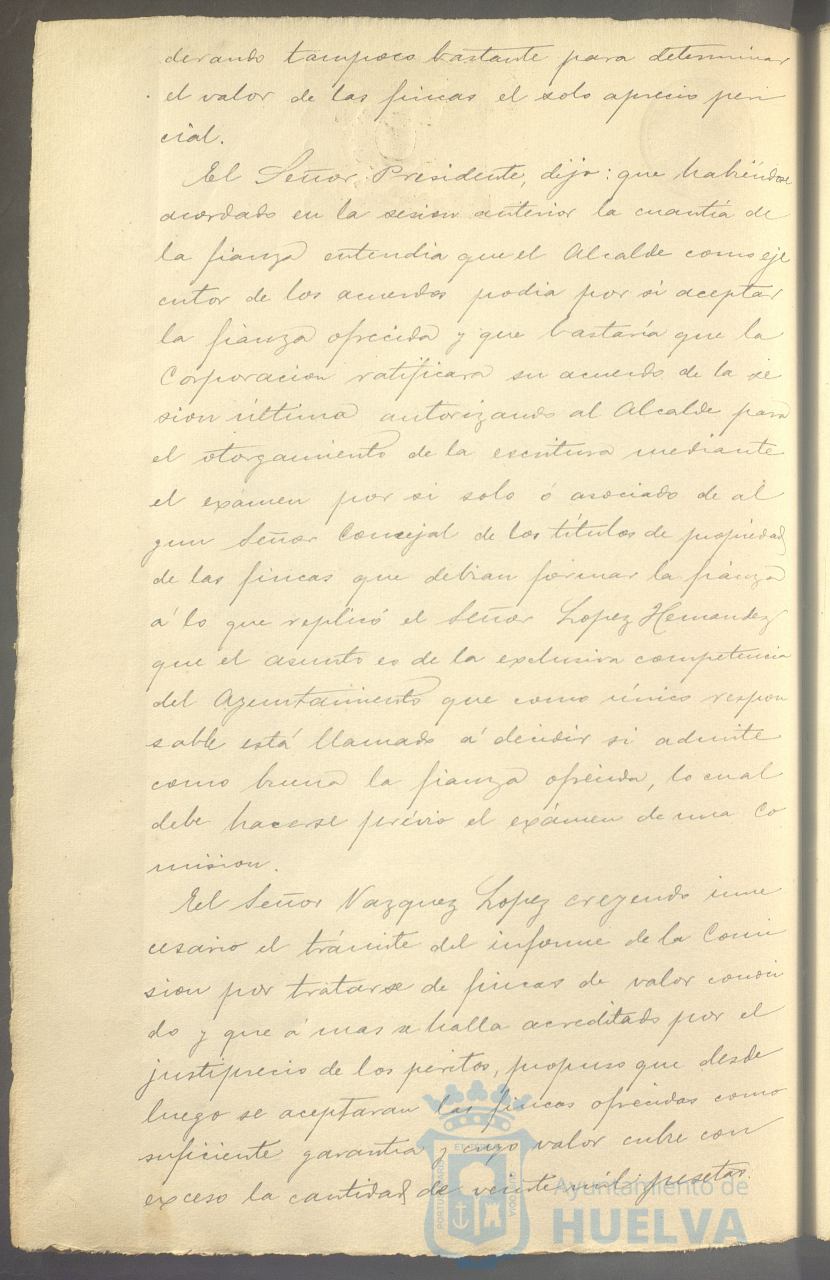 derando tampoco bastante para determinar
el valor de las fincas el solo aprecio peri
cial.
El Señor Presidente, dijo: que habiéndose
acordado en la sesion anterior la cuantía de
la fianza entendia que el Alcalde como eje
cutor de los acuerdos podia por si aceptar
la fianza ofrecida y que bastaría que la
Corporacion ratificara su acuerdo de la se
sion última autorizando al Alcalde para
el otorgamiento de la escritura mediante
el exámen por si solo ó asociado de al
gun Señor Concejal de los títulos de propiedad
de las fincas que debian formar la fianza
á lo que replicó el Señor Lopez Hernandez
que el asunto es de la exclusiva competencia
del Ayuntamiento que como único respon
sable está llamado á decidir si admite
como buena la fianza ofrecida, lo cual
debe hacerse prévio el exámen de una Co
mision.
El Señor Vazquez Lopez creyendo inne
cesario el trámite del informe de la Comi
sion por tratarse de fincas de valor conoci
do y que á mas se halla acreditado por el
justiprecio de los peritos, propuso que desde
luego se aceptaran las fincas ofrecidas como
suficiente garantia y cuyo valor cubre con
exceso la cantidad de veinte mil pesetas.
Ayuntamiento de
HUELVA